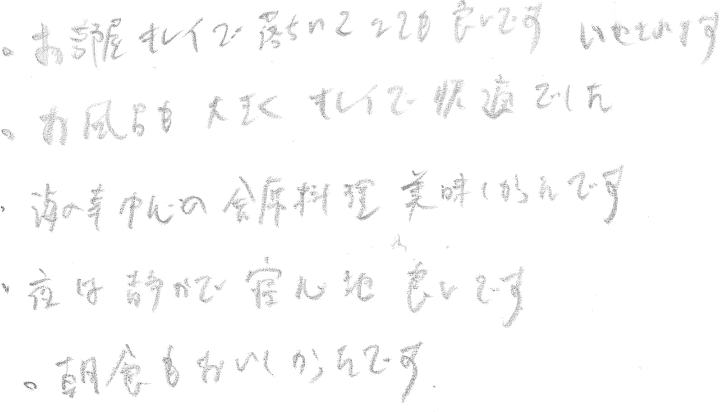 。お部屋キレイで落ちついてとても良いです
。お風呂も大きくキレイで快適でした
・海の幸 会席料理美味しかったです
・夜は静かで寝心地良いです
。朝食もおいしかったです。